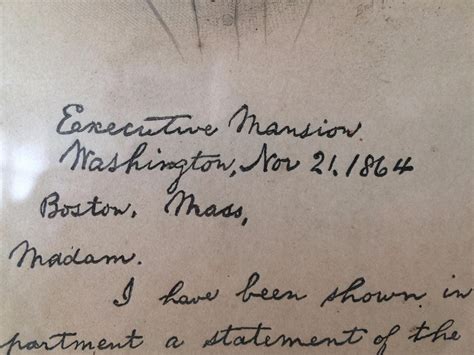 Executive Mansion
Washington, Nov 21, 1864
Boston, Mass,
Madam.
I have been shown in
partment a statement of the